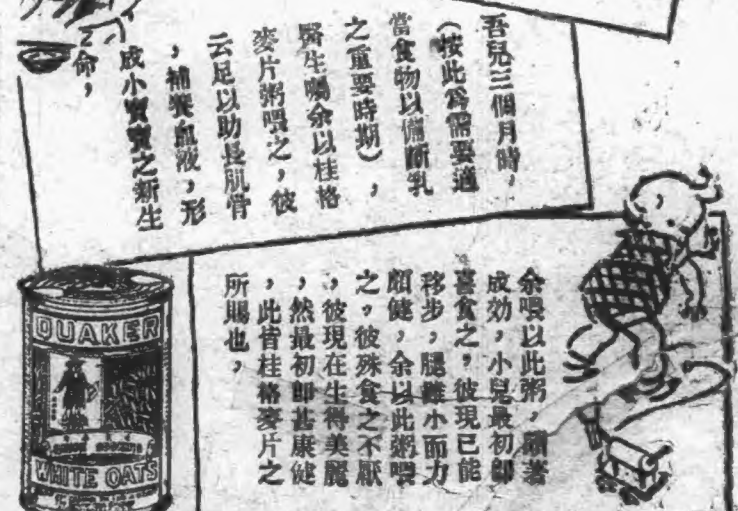 吾兒三個月時，
（按此為需要適
當食物以備斷乳
之重要時期），
醫生囑余以桂格
麥片粥喂之，彼
云足以助長肌骨
，補養血液，形
成小寶寶之新生
命，
余喂以此粥，頗著
成効，小兒最初即
喜食之，彼現已能
移步，腿雖小而力
頗健，余以此粥喂
之，彼殊食之不厭
，彼現在生得美麗
，然最初即甚康健
，此皆桂格麥片之
所賜也，
QUAKER
WHITE OATS